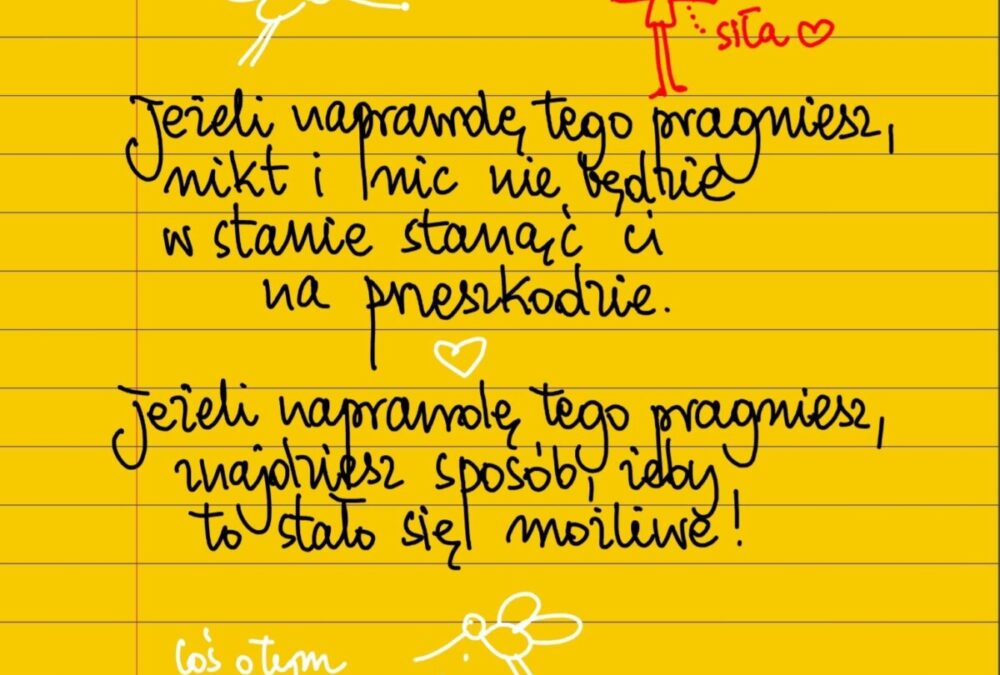 siła
Jeżeli naprawdę tego pragniesz,
nikt i nic nie będzie
w stanie stanąć ci
na przeszkodzie.
Jeżeli naprawdę tego pragniesz,
znajdziesz sposób, żeby
to stało się możliwe!
Coś o tym